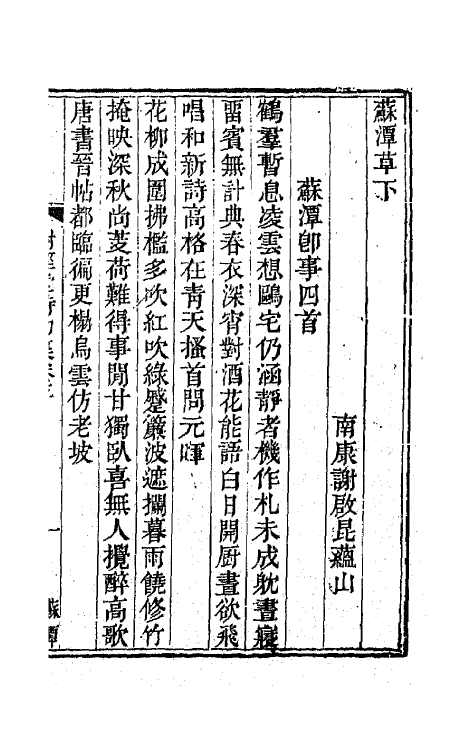 蘇潭草下
南康謝啟昆蘊山
蘇潭卽事四首
鶴羣暫息凌雲想鷗宅仍涵靜者機作札未成躭晝寢
畱賓無計典春衣深宵對酒花能語白日開厨晝欲飛
唱和新詩高格在靑天搔首問元暉
花柳成圍拂檻多吹紅吹綠蹙簾波遮攔暮雨饒修竹
掩映深秋尚芰荷難得事閒甘獨臥喜無人攪醉高歌
唐書晉帖都臨徧更榻烏雲仿老坡
一
蘇潭